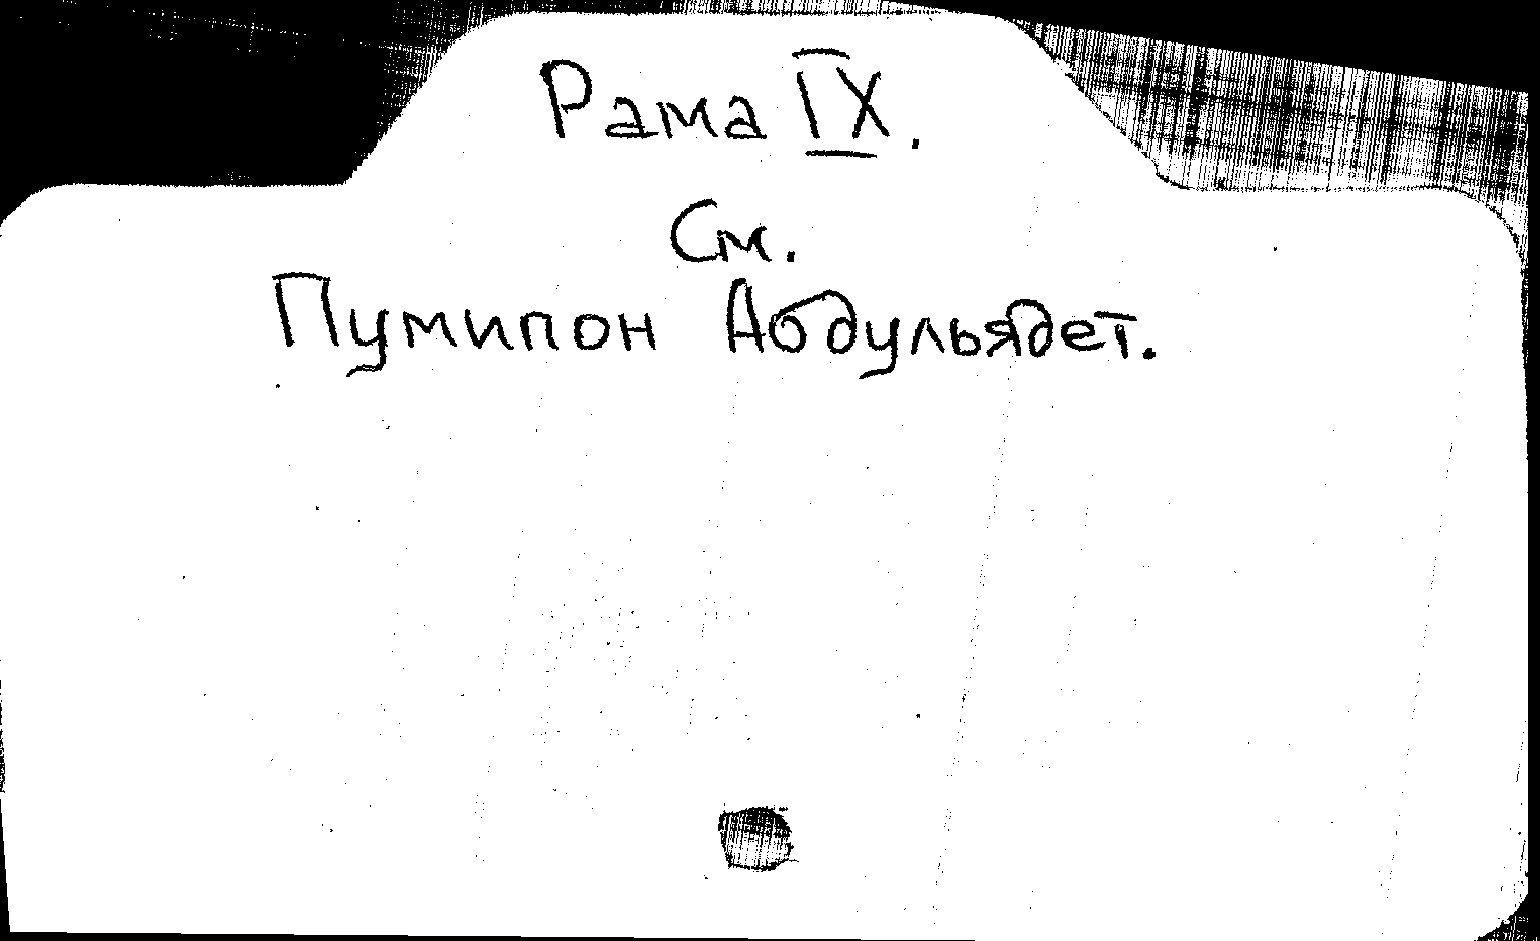 Рама IX.
См.
Пумипон Абдульядет.